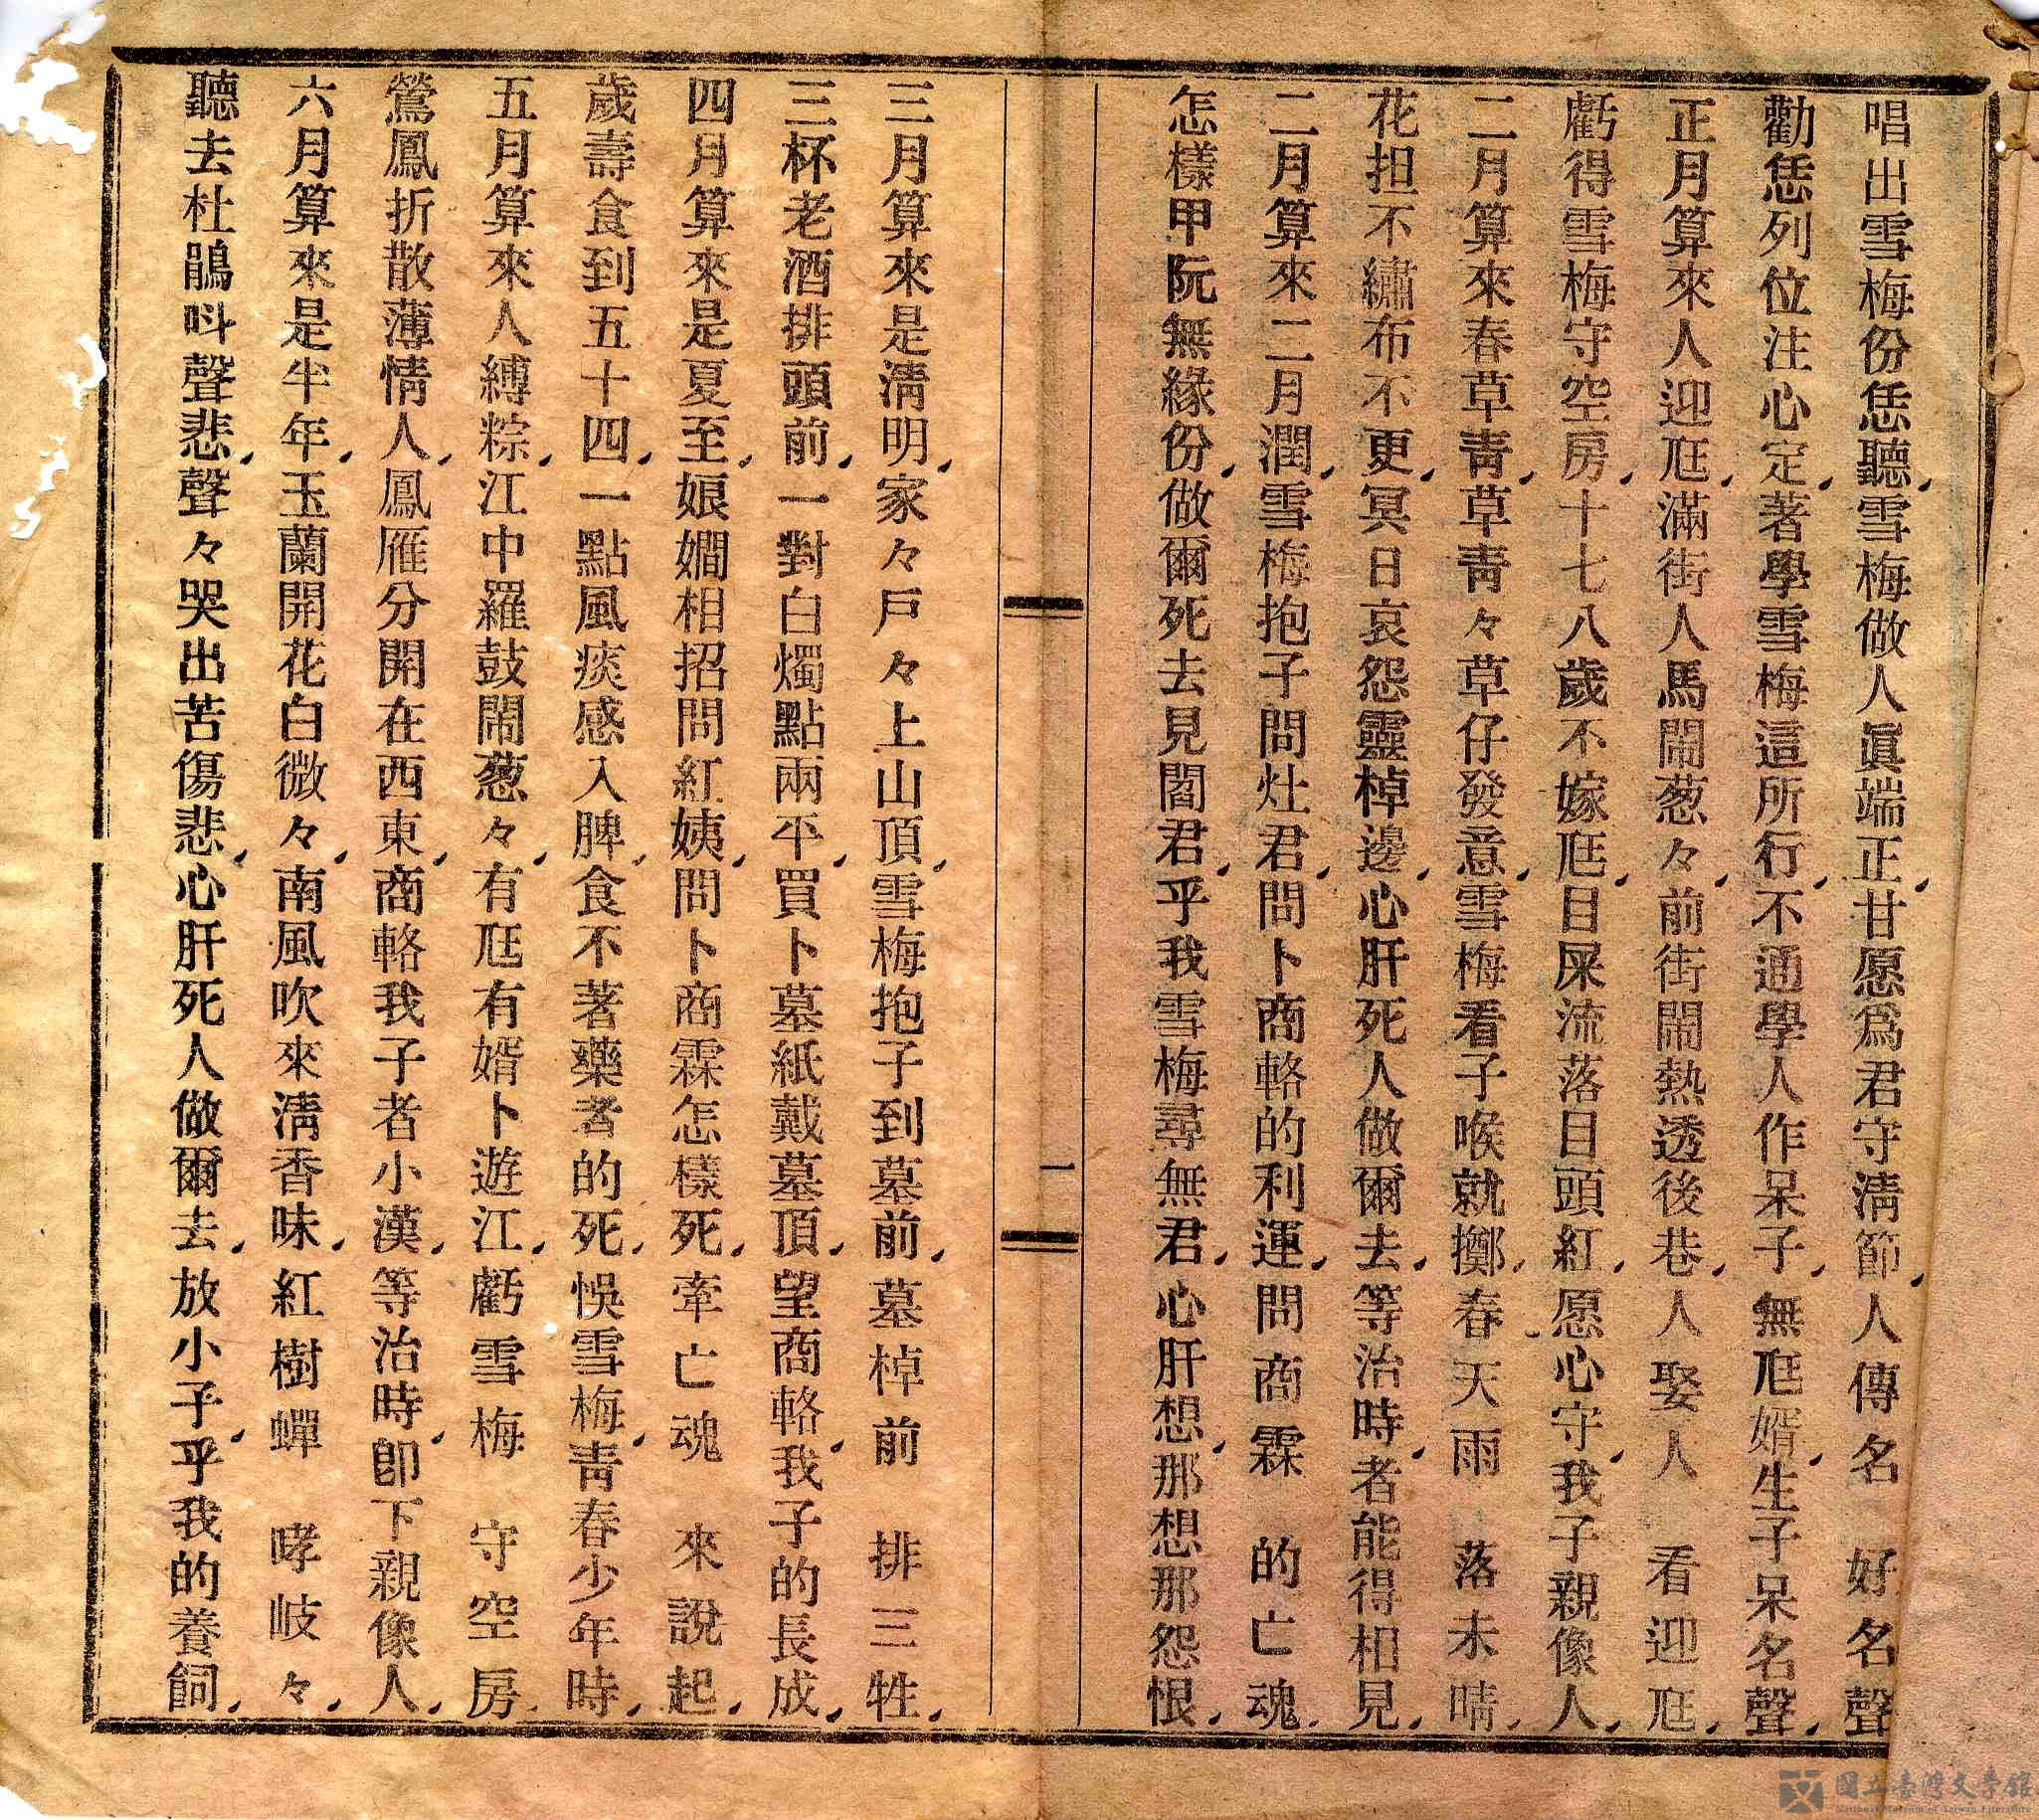 唱出雪梅份恁聽、雪梅做人眞端正、甘愿爲君守淸節、人傳名好名聲
勸恁列位注心定、著學雪梅這所行、不通學人作呆子、無尫婿、生子呆名聲、
正月算來人迎尫、滿街人馬鬧葱々、前街鬧熱透後巷、人娶人看迎尫、
虧得雪梅守空房、十七八歲不嫁尫、目屎流落目頭紅、愿心守、我子親像人、
二月算來春草靑、草靑々草仔發意、雪梅看子喉就擲、春天雨落未晴、
花担不繡布不更、冥日哀怨靈棹邊、心肝死人做爾去、等治時、者能得相見、
二月算來二月潤、雪梅抱子問灶君、問卜商輅的利運、問商霖的亡魂、
怎樣甲阮無緣份、做爾死去見閻君、乎我雪梅尋無君、心肝想、那想那怨恨、
一
三月算來是淸明、家々戶々上山頂、雪梅抱子到墓前、墓棹前排三牲、
三杯老酒排頭前、一對白燭點兩平、買卜墓紙戴墓頂、望商輅、我子的長成、
四月算來是夏至、娘嫺相招問紅姨、問卜商霖怎樣死、牽亡魂來說起、
歲壽食到五十四、一點風痰感入脾、食不著藥者的死、悞雪梅、靑春少年時、
五月算來人縛粽、江中羅鼓鬧葱々、有尫有婿卜遊江、虧雪梅守空房、
鶯鳳折散薄情人、鳳雁分開在西東、商輅我子者小漢、等治時、卽下親像人、
六月算來是半年、玉蘭開花白微々、南風吹來淸香味、紅樹蟬哮岐々、
聽去杜鵑呌聲悲、聲々哭出苦傷悲、心肝死人做爾去、放小子、乎我的養飼、
國立臺灣文學館
National Museum of Taiwan Literature